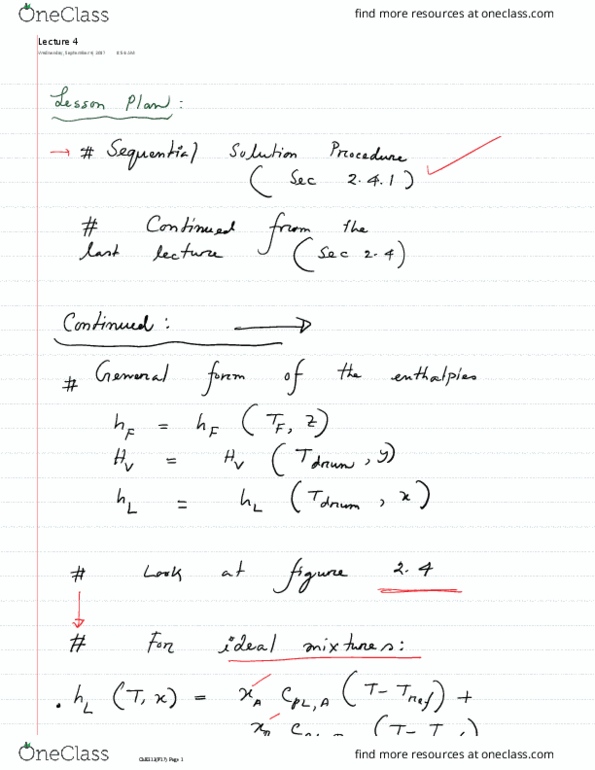 OneClass
find more resources at oneclass.com
Lecture 4
Wednesday, September 6, 2017
Lesson Plan:
→ # Sequential Solution Procedure
(Sec 2.4.1) ✓
# Continued from the
last lecture (Sec 2.4)
Continued: →
# General form of the enthalpies
h_F = h_F (T_F, z)
H_V = H_V (T_drum, y)
h_L = h_L (T_drum, x)
# Look at figure 2.4
↓
# For ideal mixtures:
. h_L (T, x) = x_A C_PL,A (T - T_ref) +
OneClass
Page 1
find more resources at oneclass.com